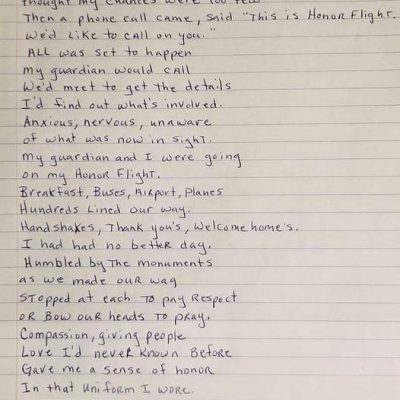 thought my chances were too few
Then a phone call came, said "This is Honor Flight.
We'd like to call on you."
All was set to happen
my guardian would call
We'd meet to get the details
I'd find out what's involved.
Anxious, nervous, unaware
of what was now in sight.
My guardian and I were going
on my Honor Flight.
Breakfast, Buses, Airport, Planes
Hundreds lined our way.
Handshakes, Thank you's, Welcome home's.
I had had no better day.
Humbled by The monuments
as we made our way
Stopped at each to pay respect
or bow our heads to pray.
Compassion, giving people
Love I'd never known before
Gave me a sense of honor
In that uniform I wore.